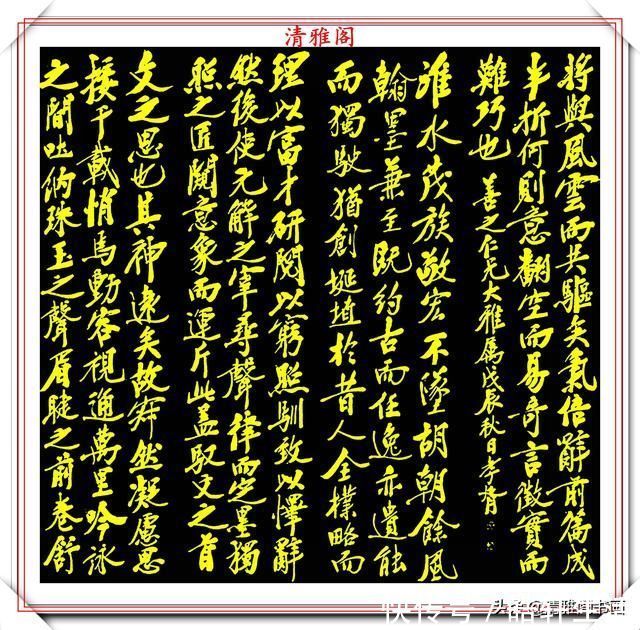 清雅阁
将與風雲而共驅矣氣倍辭前篇成
半折何則意翻空而易奇言徵實而
難巧也 善之仁兄大雅属戊辰秋日孝胥
淮水茂族敬宏不墜胡朝餘風
翰墨兼至既約古而任逸亦遺能
而獨駛猶創埏埴於昔人全樸略而
理以富才研閱以窮照馴致以懌辭
然後使元解之宰尋聲律而定墨獨
照之匠闚意象而運斤此蓋馭文之首
文之思也其神遠矣故寂然凝慮思
接千載悄焉動容視通萬里吟詠
之間吐納珠玉之聲眉睫之前卷舒
快传号/